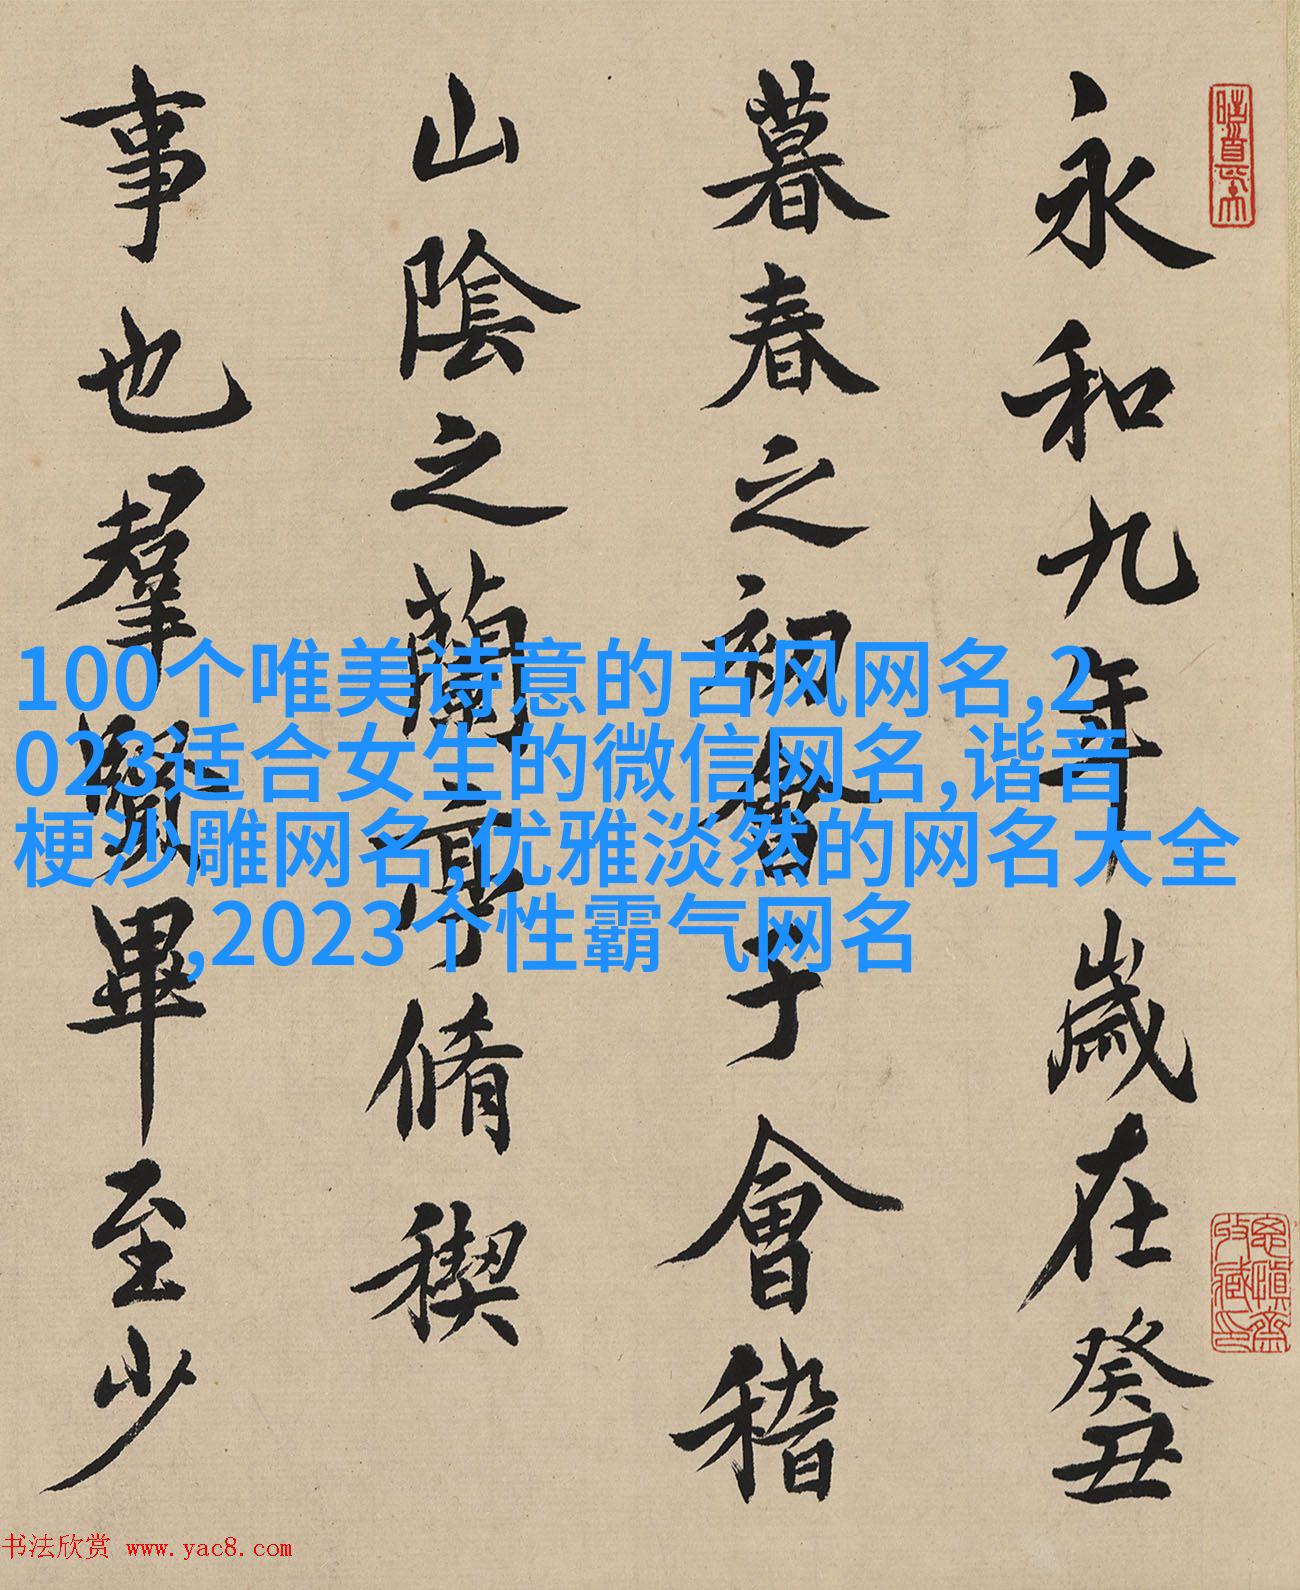 永和九年歲在癸丑
暮春之初會于會稽
山陰之蘭亭脩稧
事也羣賢畢至少
100个唯美诗意的古风网名,2
023适合女生的微信网名,谐音
梗沙雕网名,优雅淡然的网名大全
,2023个性霸气网名
书法欣赏 www.yac8.com